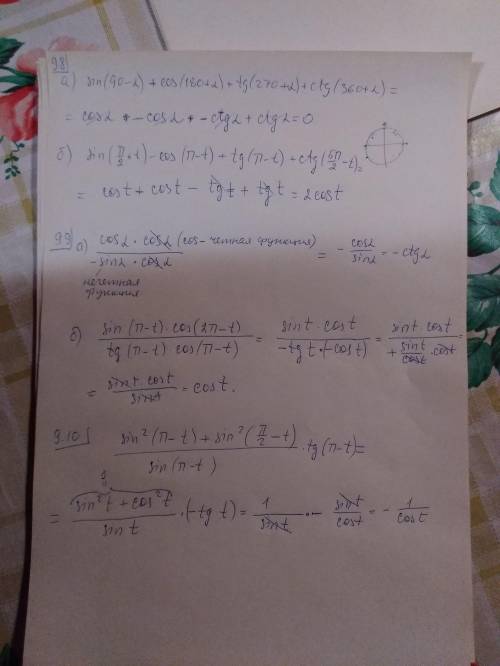 9.8)
а) sin(90-α) + cos(180+α) + tg(270+α) + ctg(360+α) =
= cosα + -cosα + -ctgα + ctgα = 0
б) sin(π/2 + t) - cos(π-t) + tg(π-t) + ctg(5π/2 - t) =
= cost + cost - tgt + tgt = 2cost
9.9) а) cosα · cosα (cos-четная функция) / -sinα · cosα = - cosα/sinα = -ctgα
нечетная
функция
б) sin(π-t) · cos(2π-t) / tg(π-t) cos(π-t) = sint · cost / -tgt · (-cost) = sint · cost / + sint/cost · cost =
= sint · cost / sint = cost.
9.10) sin²(π-t) + sin²(π/2 - t) / sin(π-t) · tg(π-t) =
1
= sin²t + cos²t / sint · (-tgt) = 1/sint · - sint/cost = - 1/cost